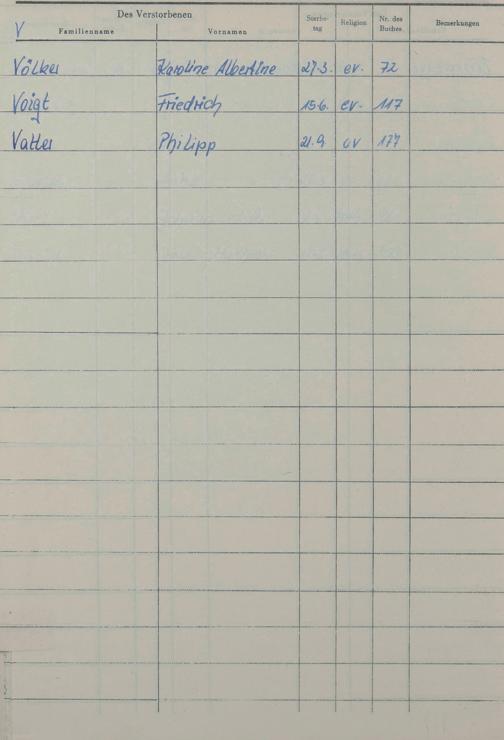 Des Verstorbenen
V Familienname Vornamen Sterbe-tag Religion Nr. des Buches Bemerkungen
Völker Karoline Albertine 27.3. ev. 72
Voigt Friedrich 15.6. ev. 117
Vatter Philipp 21.9 ev 177